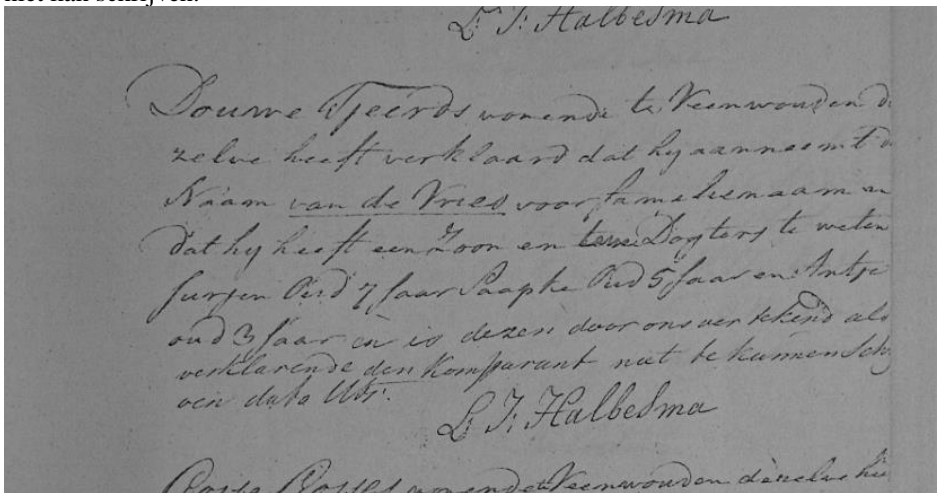 L: T: Halbesma
Douwe Tjeerds wonende te Veenwouden de
zelve heeft verklaard dat hy aanneemt d
Naam van de Vries voor familienaam en
dat hy heeft een Zoon en twe Dogters te weten
Jurjen Oud 7 Jaar Saapke Oud 5 Jaar en Antje
oud 3 Jaar en is dezen door ons vertekend als
verklarende den Komparant niet te kunnen Schry
ven dato Uts:
L: T: Halbesma
wonende te Veenwouden dezelve hee